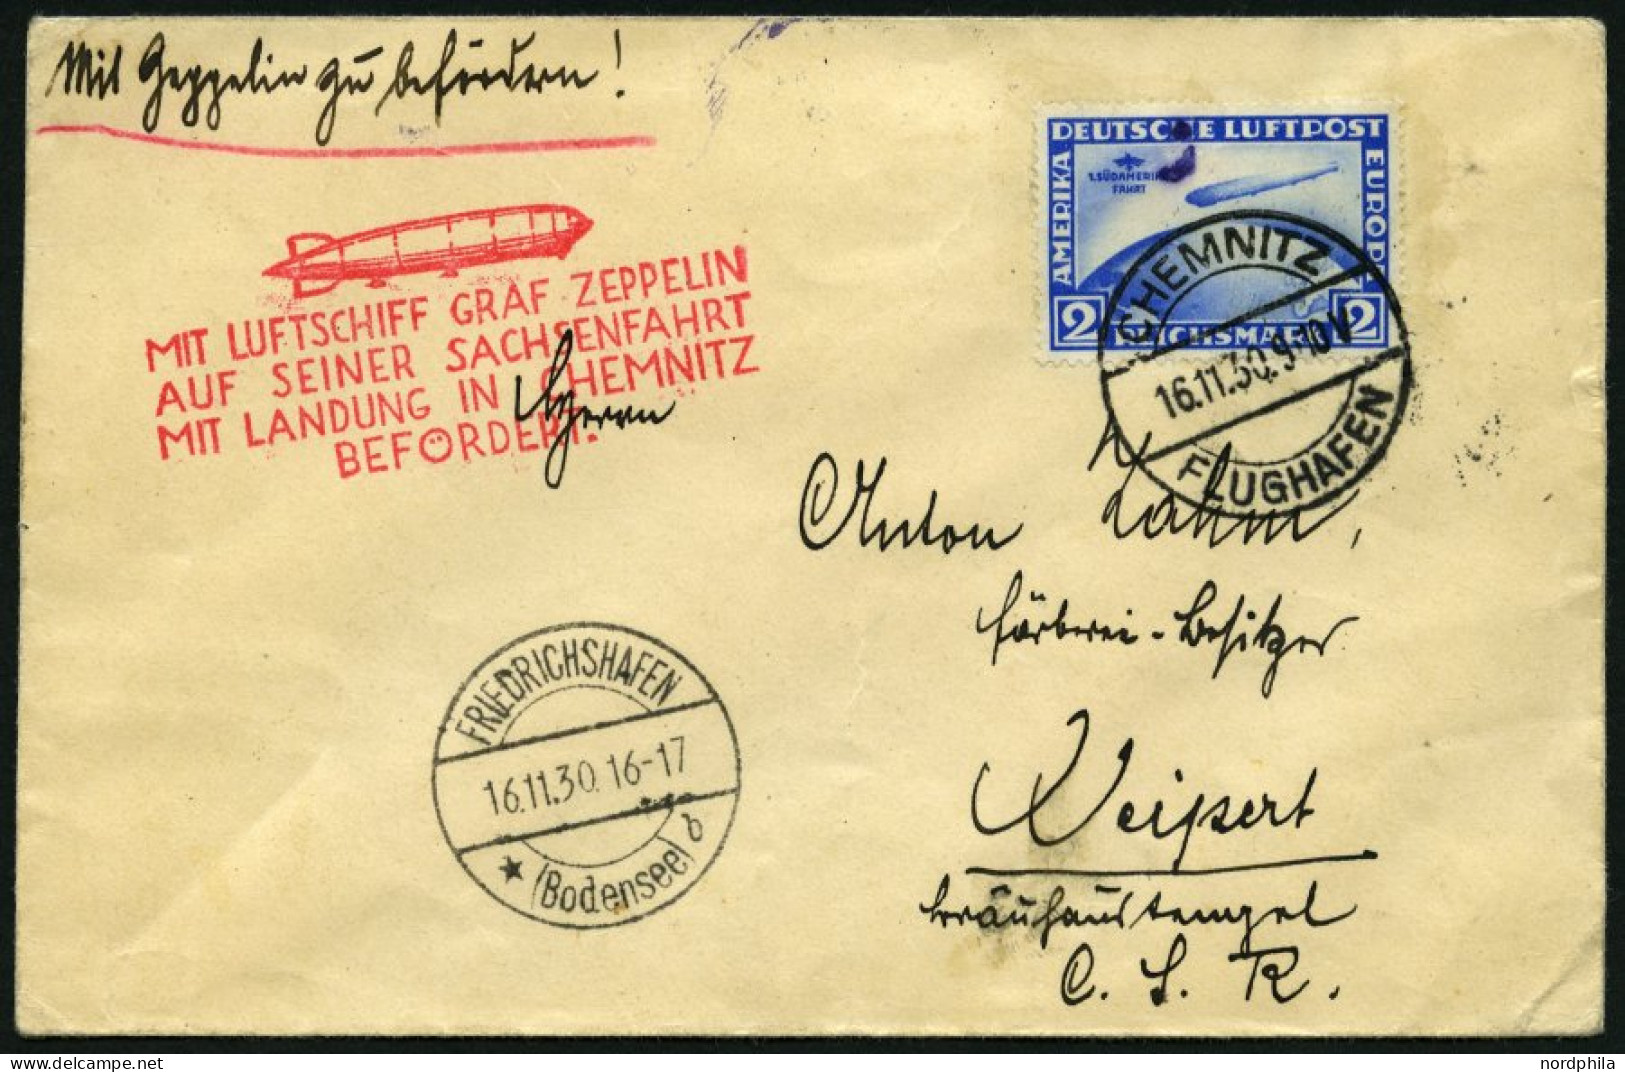 Mit Zeppelin zu befördern!
DEUTSCHE LUFTPOST
AMERIKA
EUROPA
1. SÜDAMERIKA
FAHRT
2 REICHSMARK 2
CHEMNITZ
16.11.30. 9-10 V
FLUGHAFEN
MIT LUFTSCHIFF GRAF ZEPPELIN
AUF SEINER SACHSENFAHRT
MIT LANDUNG IN CHEMNITZ
BEFÖRDERT.
Herrn
Anton Lahm,
Färberei-Besitzer
Weipert
C. S. R.
FRIEDRICHSHAFEN
16.11.30. 16-17
★ (Bodensee) b
nordphila